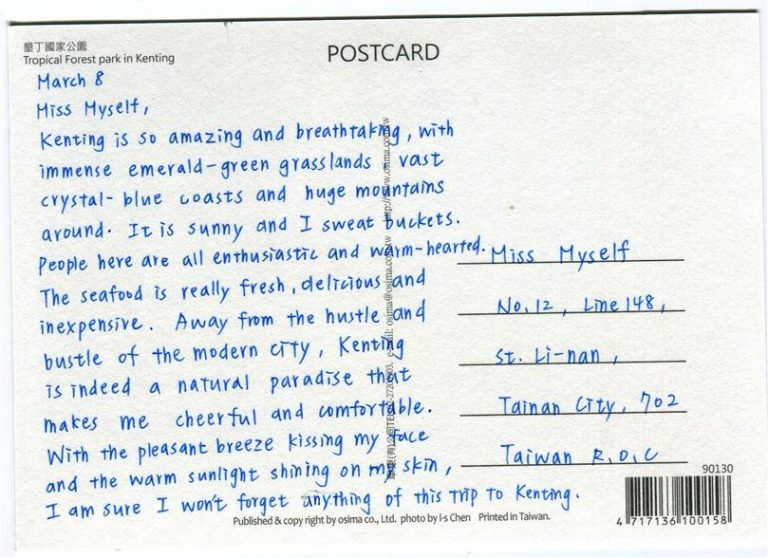 墾丁國家公園
Tropical Forest park in Kenting
POSTCARD
March 8
Miss Myself,
Kenting is so amazing and breathtaking, with
immense emerald-green grasslands, vast
crystal-blue coasts and huge mountains
around. It is sunny and I sweat buckets.
People here are all enthusiastic and warm-hearted.
The seafood is really fresh, delicious and
inexpensive. Away from the hustle and
bustle of the modern city, Kenting
is indeed a natural paradise that
makes me cheerful and comfortable.
With the pleasant breeze kissing my face
and the warm sunlight shining on my skin,
I am sure I won't forget anything of this trip to Kenting.
Miss Myself
No.12, Line 148,
St. Li-nan,
Tainan City, 702
Taiwan R.O.C
e-mail: osima@osima.com.tw http://www.osima.com.tw
90130
4 717136 100158
Published & copy right by osima co., Ltd. photo by I-s Chen Printed in Taiwan.